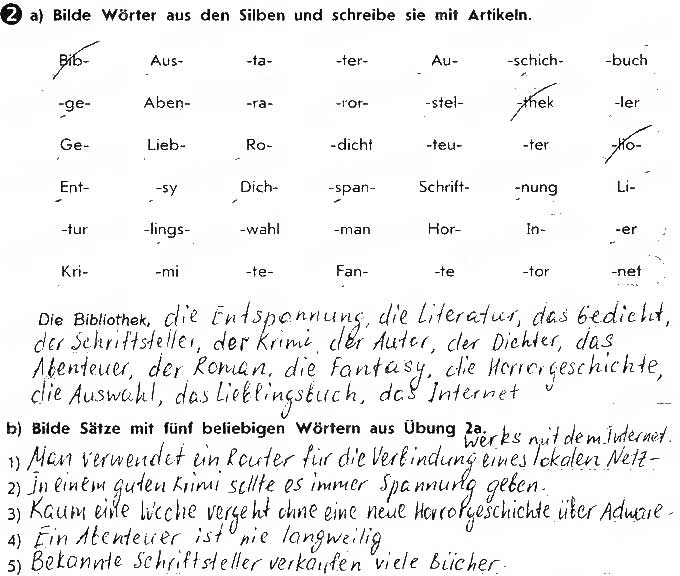 2 a) Bilde Wörter aus den Silben und schreibe sie mit Artikeln.
Bib- Aus- -ta- -ter- Au- -schich- -buch
-ge- Aben- -ra- -ror- -stel- -thek -ler
Ge- Lieb- Ro- -dicht -teu- -ter -lio-
Ent- -sy Dich- -span- Schrift- -nung Li-
-tur -lings- -wahl -man Hor- In- -er
Kri- -mi -te- Fan- -te -tor -net
Die Bibliothek, die Entspannung, die Literatur, das Gedicht,
der Schriftsteller, der Krimi, der Autor, der Dichter, das
Abenteuer, der Roman, die Fantasy, die Horrorgeschichte,
die Auswahl, das Lieblingsbuch, das Internet
b) Bilde Sätze mit fünf beliebigen Wörtern aus Übung 2a.
werks mit dem Internet.
1) Man verwendet ein Router für die Verbindung eines lokalen Netz-
2) In einem guten Krimi sollte es immer Spannung geben.
3) Kaum eine Woche vergeht ohne eine neue Horrorgeschichte über Adware.
4) Ein Abenteuer ist nie langweilig
5) Bekannte Schriftsteller verkaufen viele Bücher.